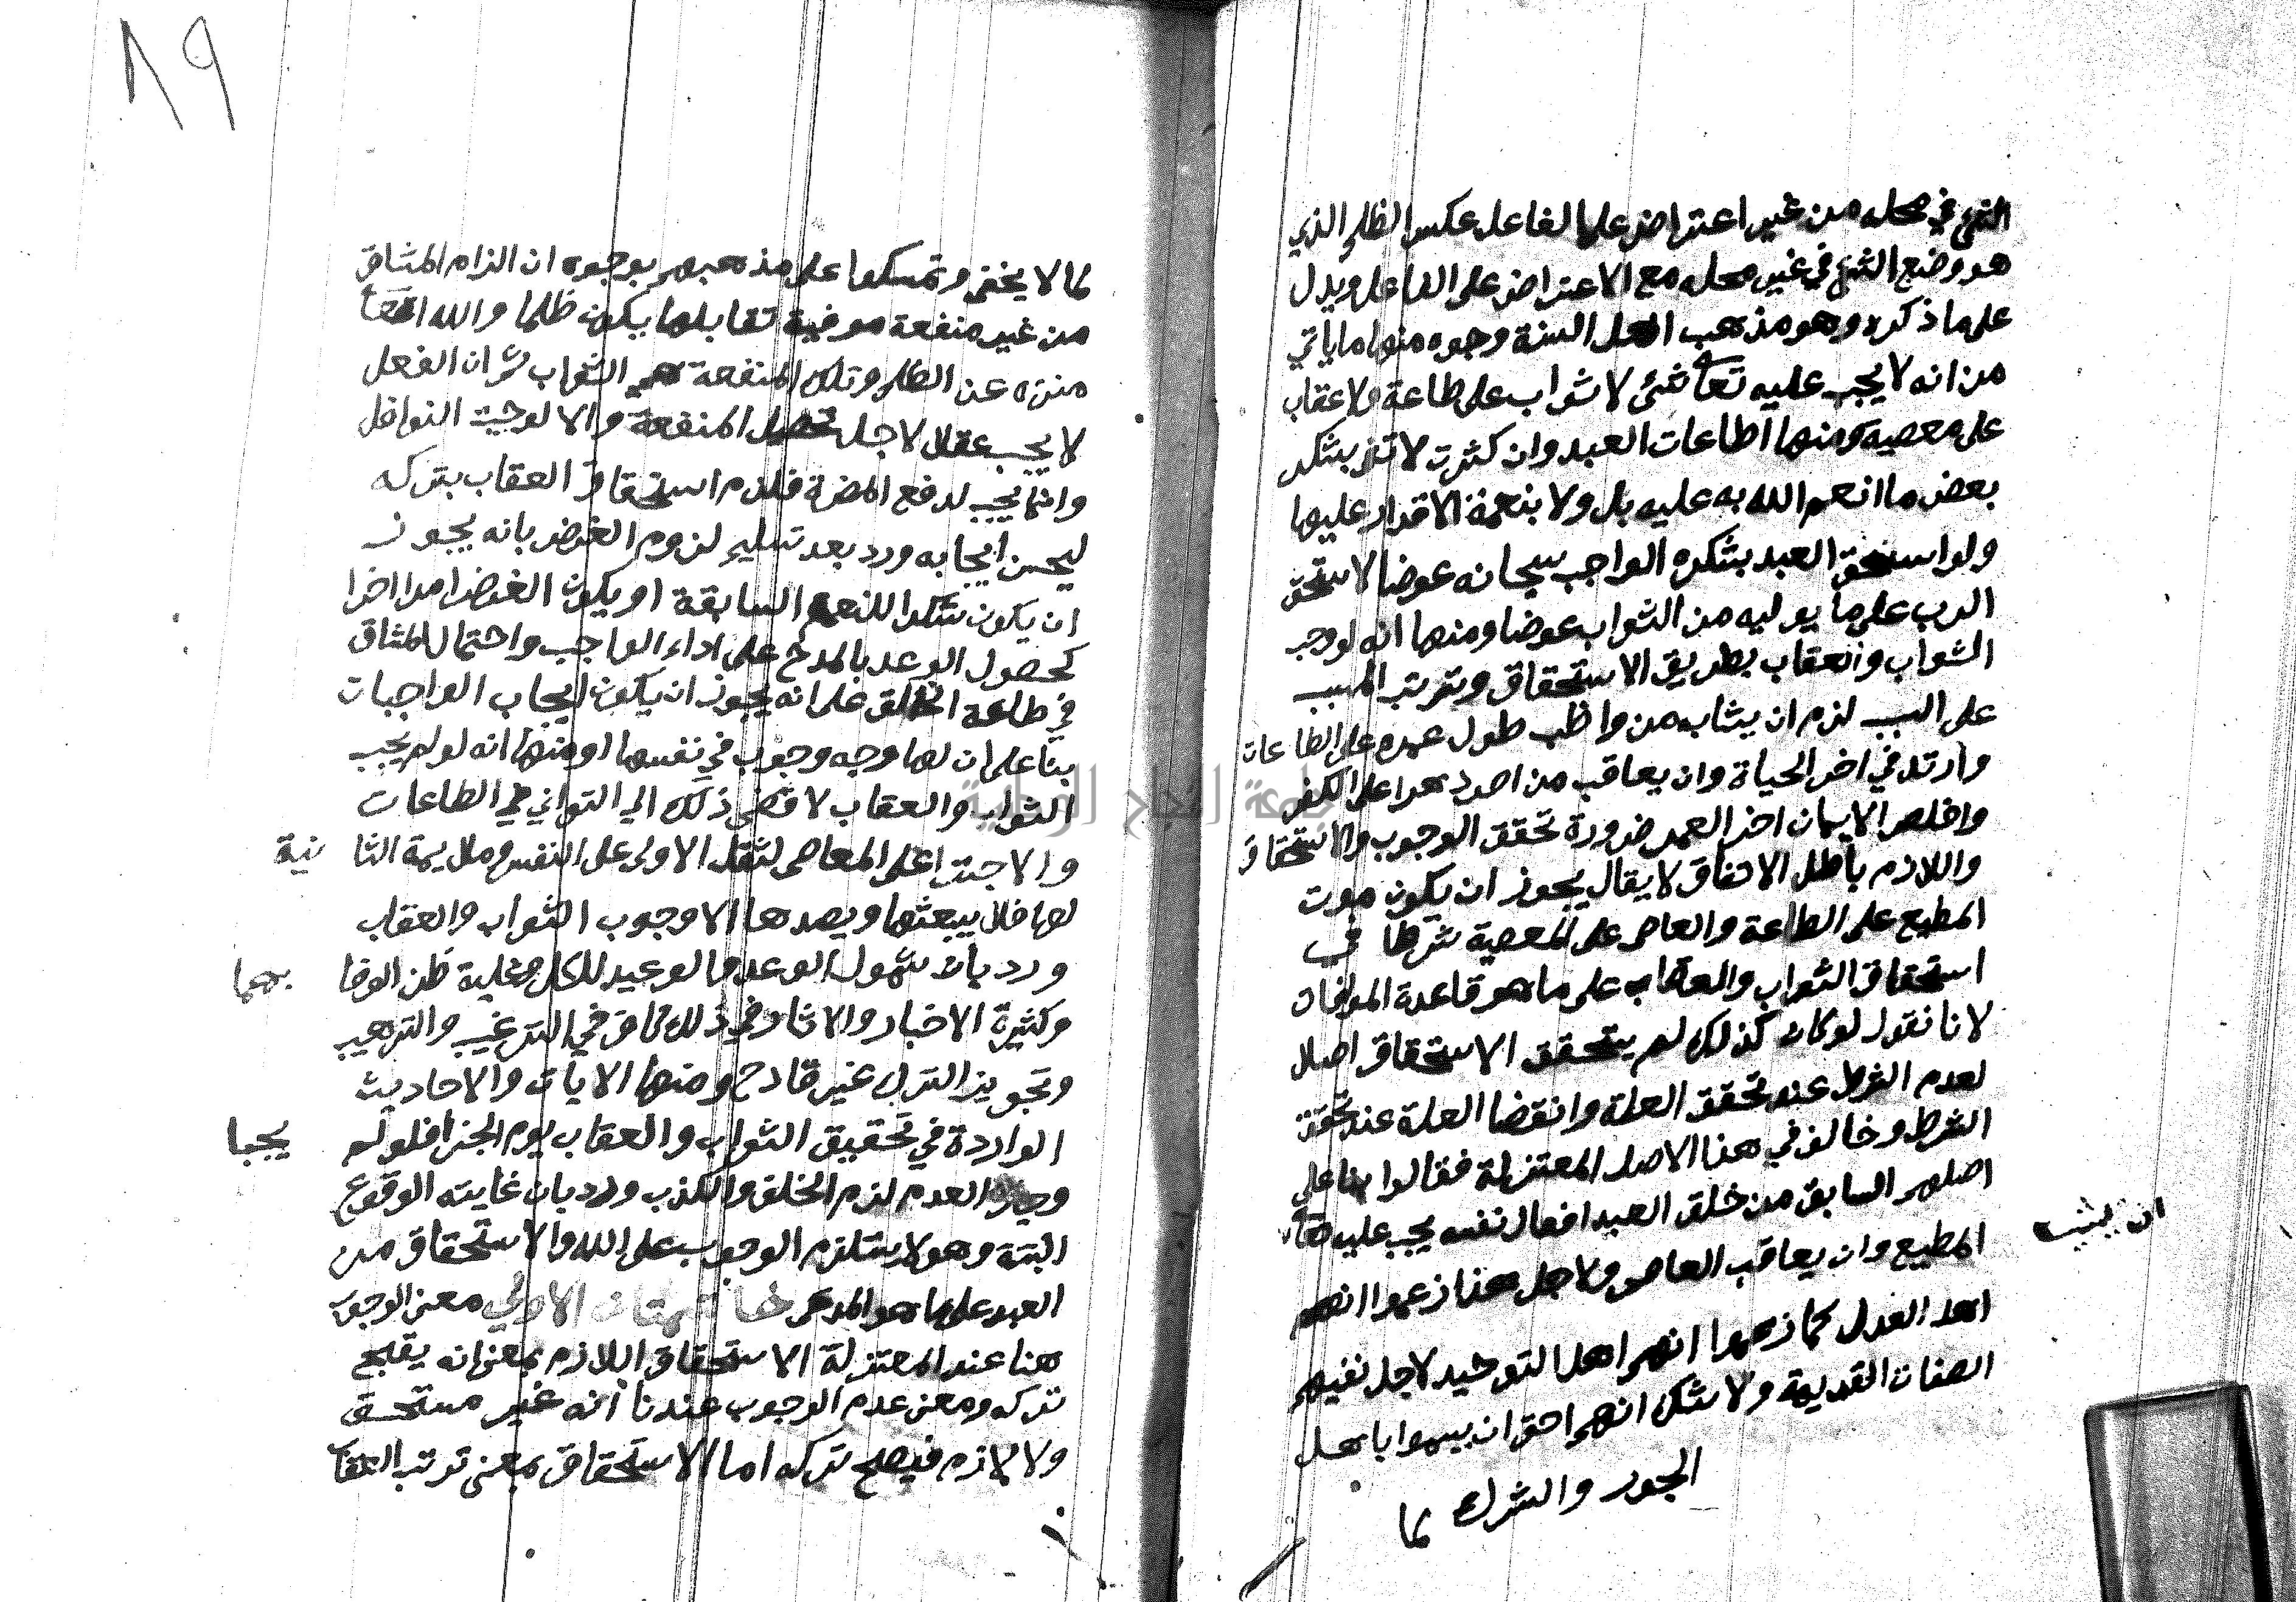 الشئ في محله من غير اعتراض على الفاعل عكس الظلم الذي
هو وضع الشئ في غير محله مع الاعتراض على الفاعل ويدل
على ما ذكره وهو مذهب اهل السنة وجوه منها ما ياتي
من انه لا يجب عليه تعا شئ لا ثواب على طاعة ولا عقاب
على معصية ومنها ان طاعات العبد وان كثرت لا تفي بشكر
بعض ما انعم الله به عليه بل ولا بنعمة الاقدار عليها
ولو استحق العبد بشكره الواجب سبحانه عوضا لاستحق
الرب على ما يوليه من الثواب عوضا ومنها انه لو وجب
الثواب والعقاب بطريق الاستحقاق وترتب المسبب
على السبب لزم ان يثاب من واظب طول عمره على الطاعات
وارتد في اخر الحياة وان يعاقب من اصر دهرا على الكفر
واخلص الايمان اخر العمر ضرورة تحقق الوجوب والاستحقاق
واللازم باطل الاتفاق لا يقال يجوز ان يكون موت
المطيع على الطاعة والعاصي على المعصية شرطا في
استحقاق الثواب والعقاب على ما هو قاعدة الموافاة
لانا نقول لو كان كذلك لم يتحقق الاستحقاق اصلا
لعدم الشرط عند تحقق العلة وانقضا العلة عند تحقق
الشرط وخالف في هذا الاصل المعتزلة فقالوا بنا على
اصلهم السابق من خلق العبد افعال نفسه يجب عليه تعا
ان يثيب
المطيع وان يعاقب العاصي ولاجل هذا زعموا انهم
اهل العدل كما زعموا انهم اهل التوحيد لاجل نفيهم
الصفات القديمة ولا شك انهم احق ان يسموا باهل
الجور والشرك لما
٨٩
لما لا يخفى وتمسكوا على مذهبهم بوجوه ان الزام المشاق
من غير منفعة موفية تقابلها يكون ظلما والله تعا
منزه عن الظلم وتلك المنفعة هي الثواب ثم ان الفعل
لا يجب عقلا لاجل تحصيل المنفعة والا لوجبت النوافل
وانما يجب لدفع المضرة فلزم استحقاق العقاب بتركه
ليحسن ايجابه ورد بعد تسليم لزوم الغرض بانه يجوز
ان يكون شكرا للنعم السابقة او يكون الغرض امرا اخرا
كحصول الوعد بالمدح على اداء الواجب واحتمال المشاق
في طاعة الخالق على انه يجوز ان يكون ايجاب الواجبات
بنا على ان لها وجه وجوب في نفسها ومنها انه لو لم يجب
الثواب والعقاب لافضى ذلك الى التواني في الطاعات
والاجترا على المعاصي لثقل الاولى على النفس وملايمة الثا نية
لها فلا يبعثها ويصدها الا وجوب الثواب والعقاب
ورد بان شمول الوعد والوعيد للكل وغلبة ظن الوفا بهما
وكثرة الاخبار والاثار في ذلك كاف في الترغيب والترهيب
وتجويز الترك غير قادح ومنها الايات والاحاديث
الواردة في تحقيق الثواب والعقاب يوم الجزا فلو لم يجبا
وجاز العدم لزم الخلف والكذب ورد بان غايته الوقوع
البتة وهو لا يستلزم الوجوب على الله والاستحقاق من
العبد على ما هو المدعى خاتمتان الاولى معنى الوجوب
هنا عند المعتزلة الاستحقاق اللازم بمعنى انه يقبح
تركه ومعنى عدم الوجوب عندنا انه غير مستحق
ولا لازم فيصح تركه اما الاستحقاق بمعنى ترتب